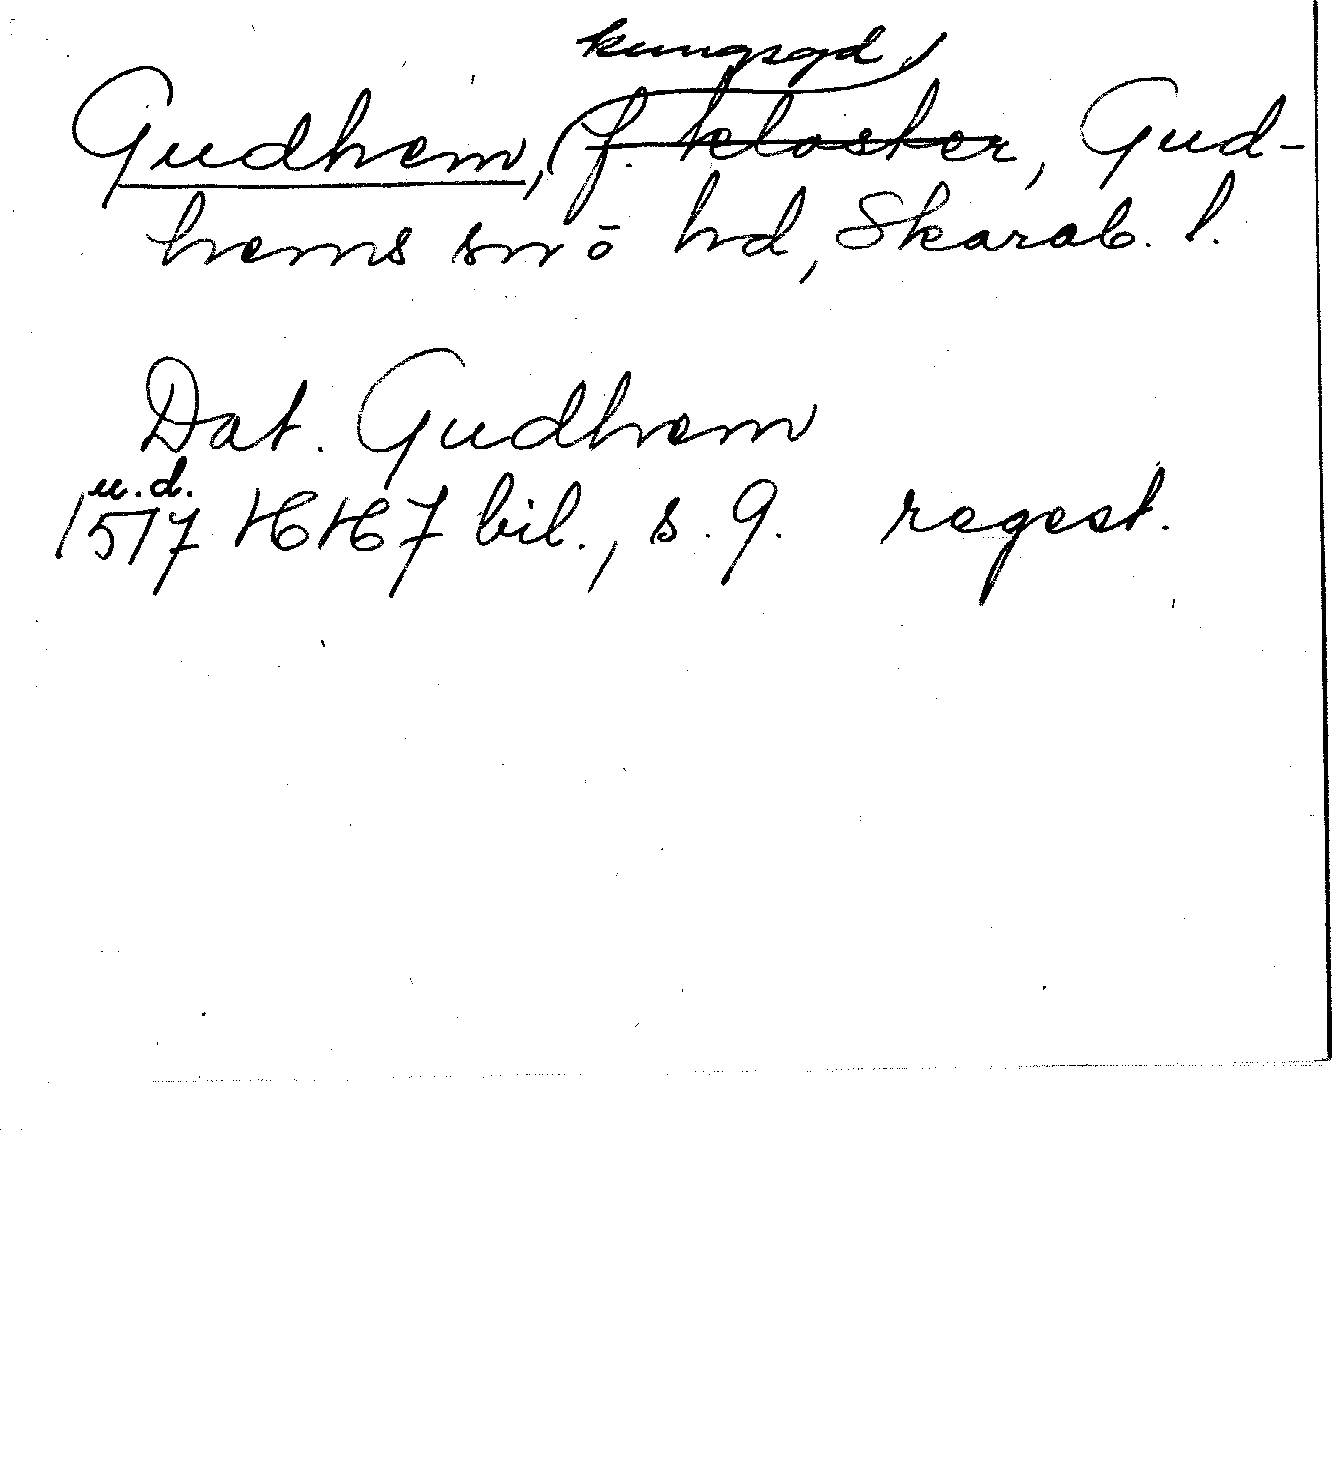 kungsgd
Gudhem, f. kloster, Gud-
hems sn o hd, Skarab. l.
Dat. Gudhem
u.d.
1517 HH 7 bil., s. 9. regest.